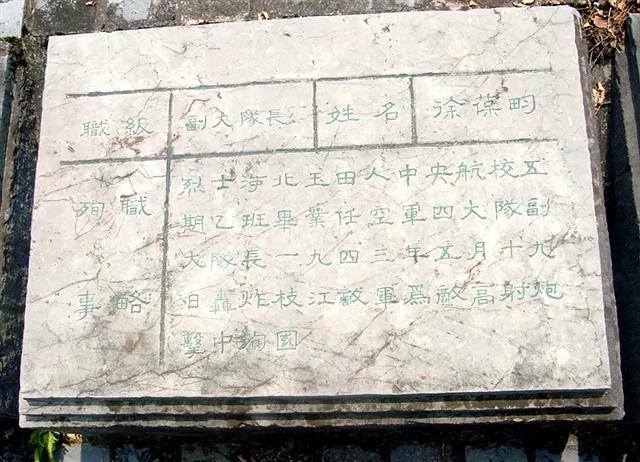 職級 副大隊長 姓名 徐葆畇
殉職
事略
烈士河北玉田人中央航校五
期乙班畢業任空軍四大隊副
大隊長一九四三年五月十九
日轟炸枝江敵軍爲敵高射炮
擊中殉國